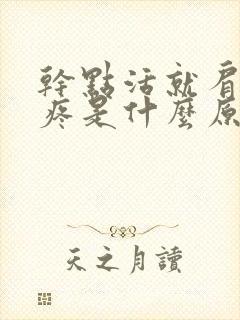 幹點活就肩
疼是什麼原
天之月讀